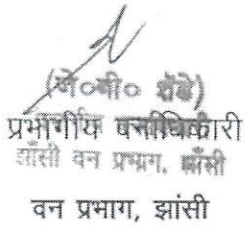 (जे०बी० शेंडे)
प्रभागीय वनाधिकारी
झाँसी वन प्रभाग, झाँसी
वन प्रभाग, झांसी